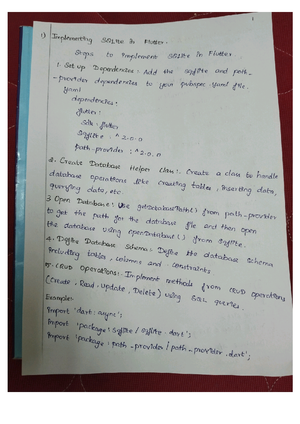 1
1) Implementing SQLite in Flutter:
Steps to implement SQLite in Flutter
1. Set up Dependencies: Add the sqflite and path-
-provider dependencies to your pubspec.yaml file.
yaml
dependencies:
flutter:
sdk: flutter
sqflite: ^2.0.0
path-provider: ^2.0.0
2. Create Database Helper Class: Create a class to handle
database operations like creating tables, inserting data,
querying data, etc.
3 Open Database: Use getDatabasePath() from path-provider
to get the path for the database file and then open
the database using openDatabase() from sqflite.
4. Define Database Schema: Define the database schema
including tables, columns and constraints
5. CRUD Operations: Implement methods from CRUD operations
(Create, Read, Update, Delete) using SQL queries.
Example:
import 'dart:async';
import 'package:sqflite/sqflite.dart';
import 'package:path_provider/path_provider.dart';